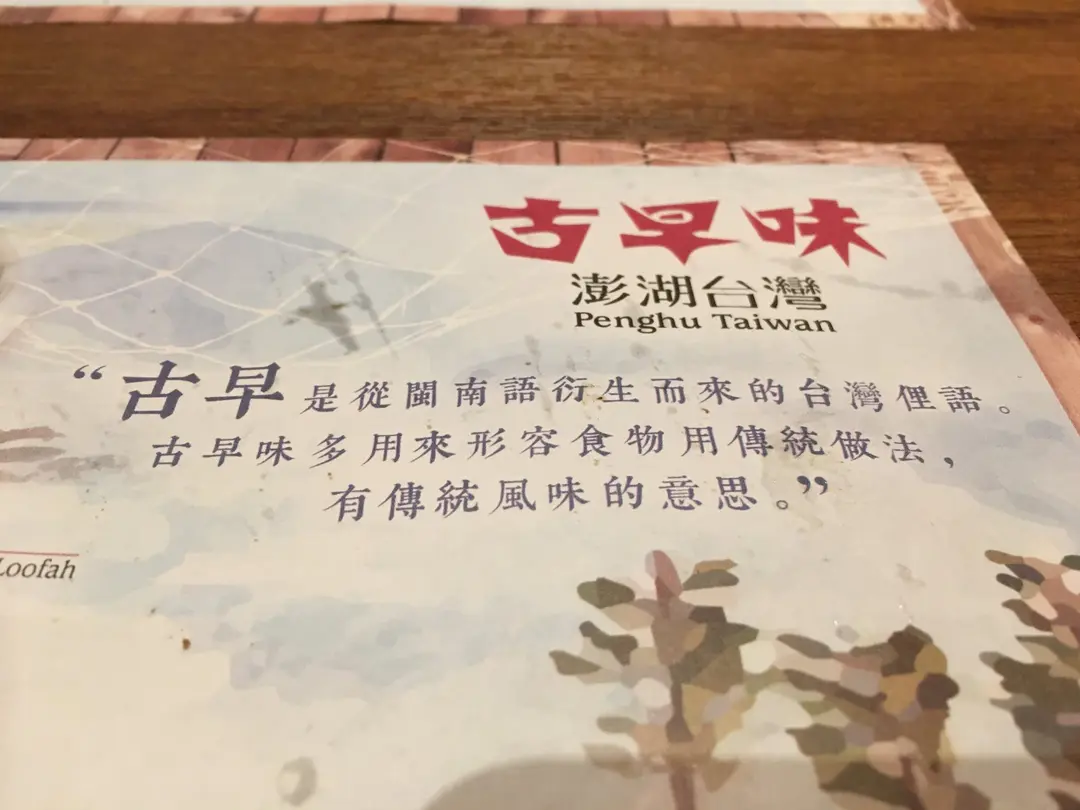 古早味
澎湖台灣
Penghu Taiwan
“古早是從閩南語衍生而來的台灣俚語。
古早味多用來形容食物用傳統做法，
有傳統風味的意思。”
Loofah